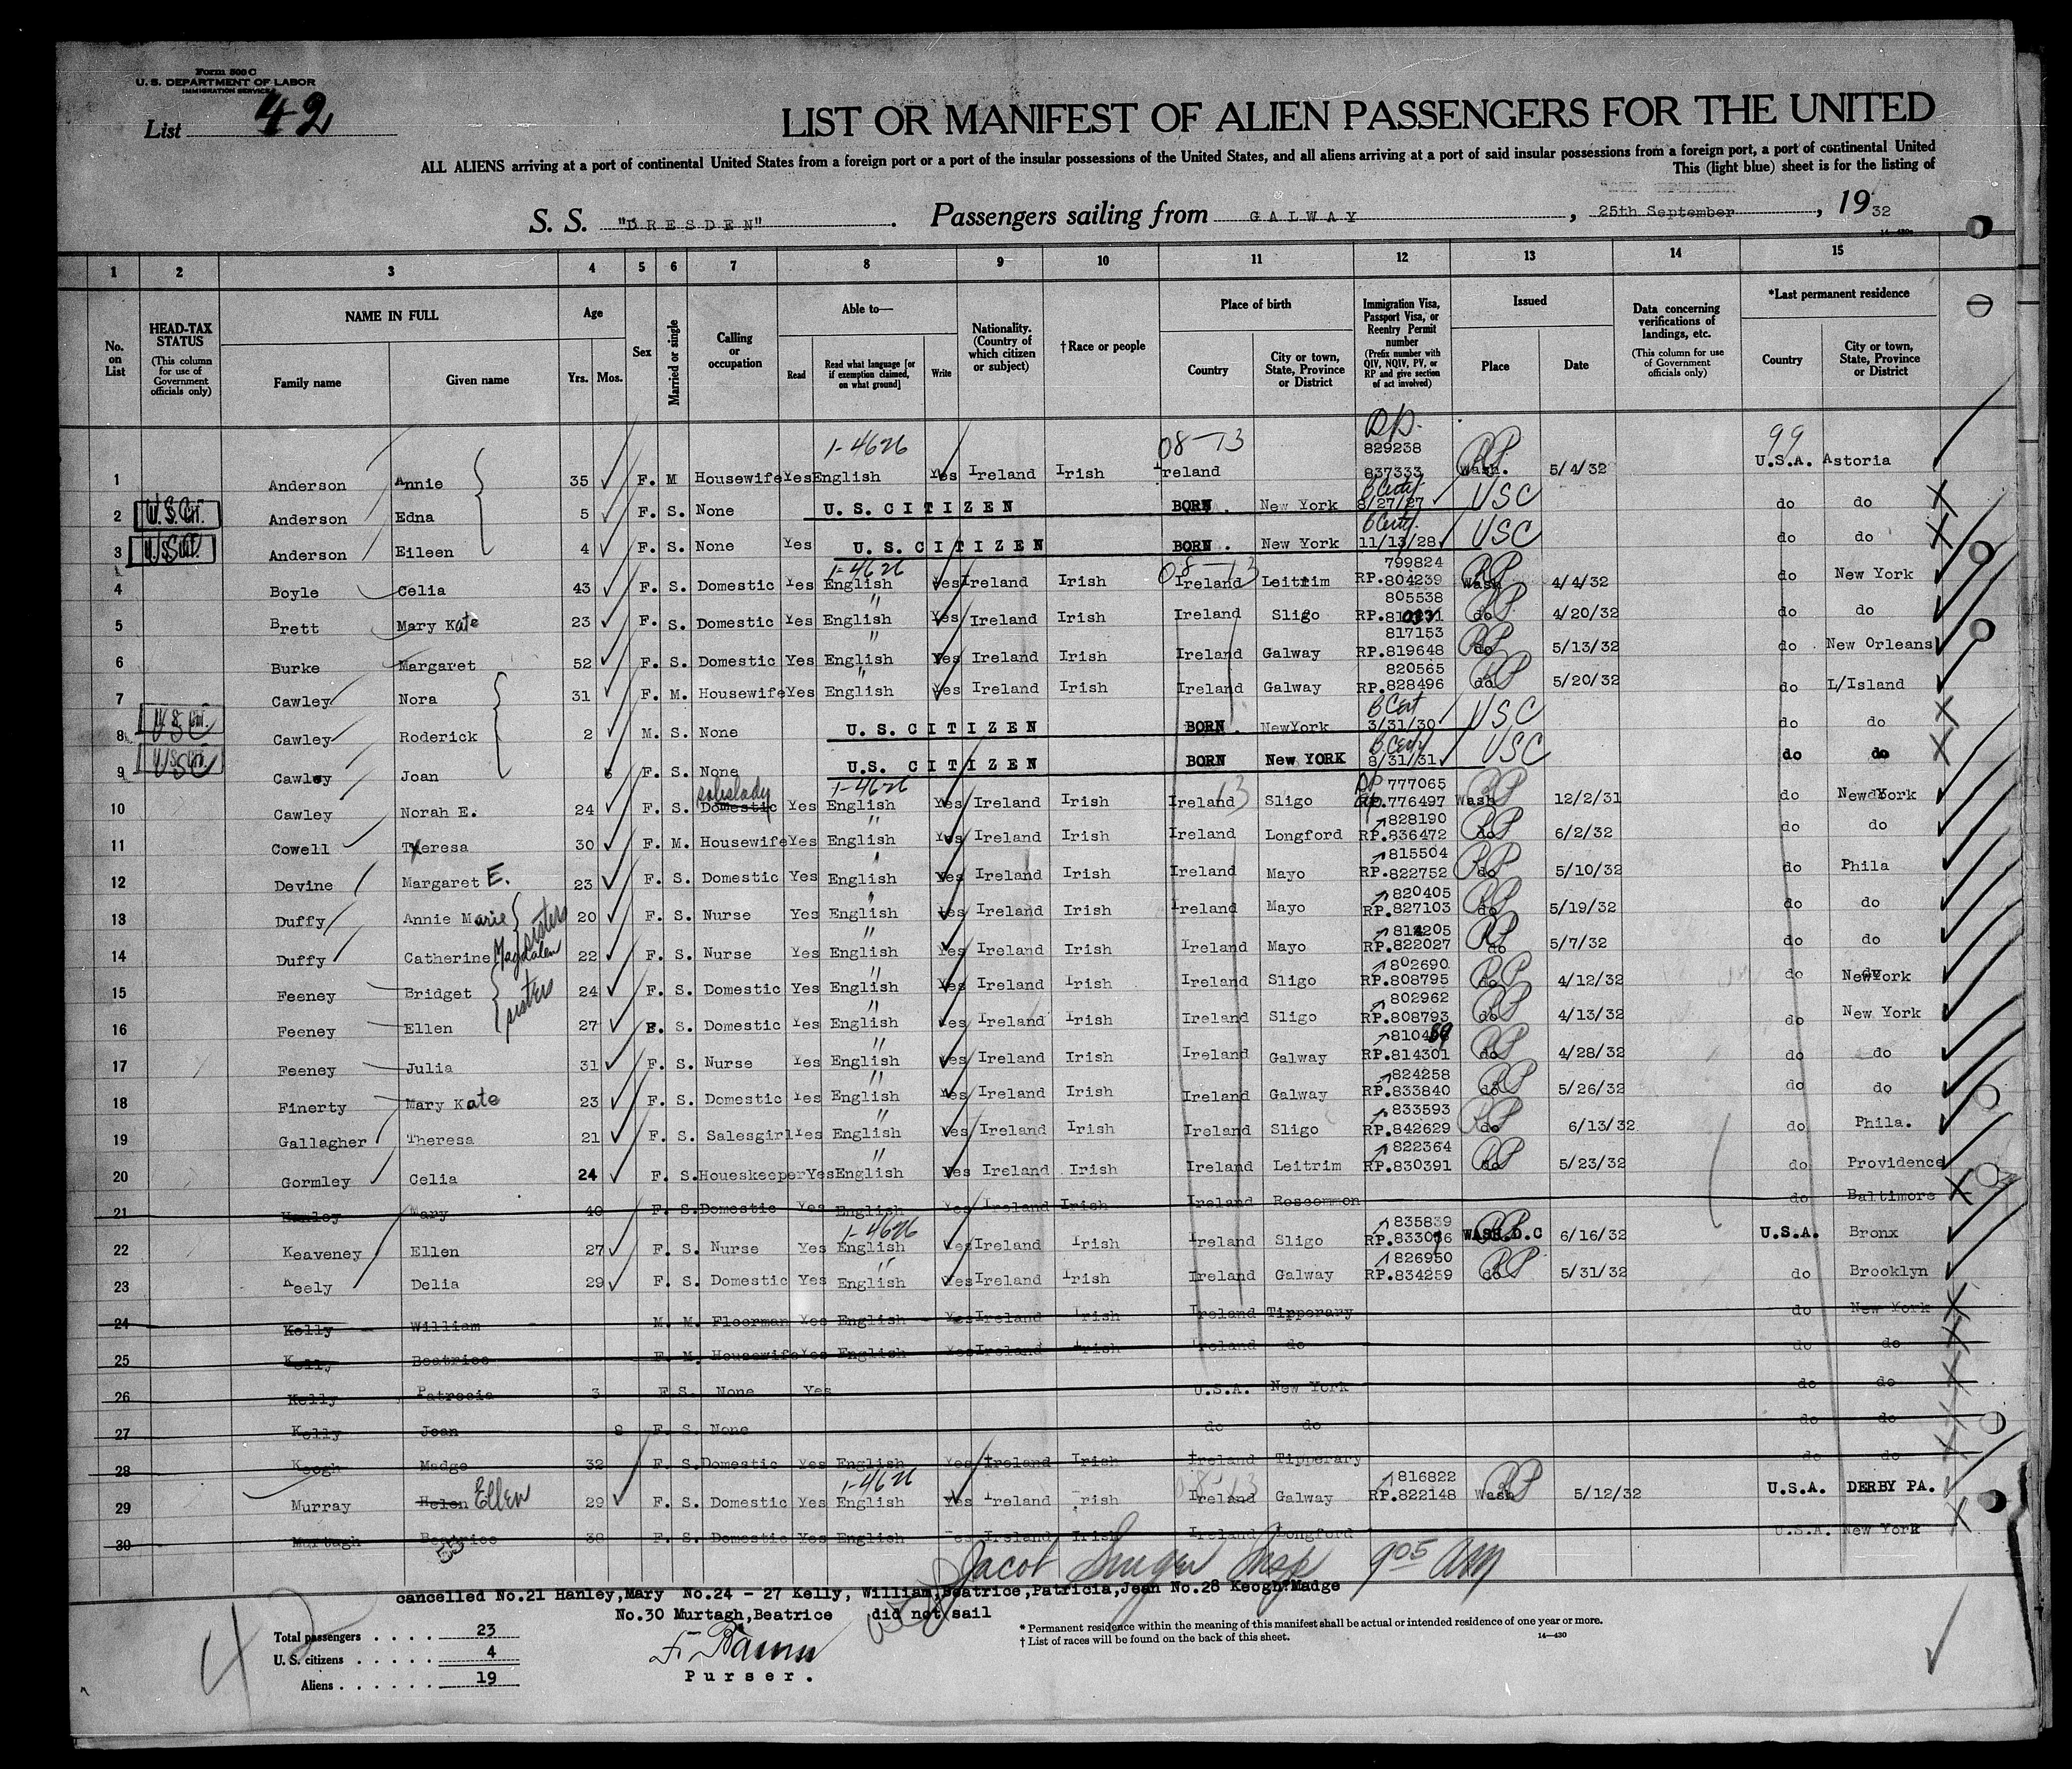 Form 500 C
U. S. DEPARTMENT OF LABOR
IMMIGRATION SERVICE
List 42
LIST OR MANIFEST OF ALIEN PASSENGERS FOR THE UNITED
ALL ALIENS arriving at a port of continental United States from a foreign port or a port of the insular possessions of the United States, and all aliens arriving at a port of said insular possessions from a foreign port, a port of continental United
This (light blue) sheet is for the listing of
S. S. "DRESDEN". Passengers sailing from GALWAY, 25th September, 19 32
1 2 3 4 5 6 7 8 9 10 11 12 13 14 15
No. on List
HEAD-TAX STATUS (This column for use of Government officials only)
NAME IN FULL Family name Given name
Age Yrs. Mos.
Sex
Married or single
Calling or occupation
Able to— Read Read what language [or if exemption claimed, on what ground] Write
Nationality. (Country of which citizen or subject)
† Race or people
Place of birth Country City or town, State, Province or District
Immigration Visa, Passport Visa, or Reentry Permit number (Prefix number with QIV, NQIV, PV, or RP and give section of act involved)
Issued Place Date
Data concerning verifications of landings, etc. (This column for use of Government officials only)
*Last permanent residence Country City or town, State, Province or District
1-4626 08-13 829238 99
1 Anderson Annie 35 F. M Housewife Yes English Yes Ireland Irish Ireland 837333 Wash. RP 5/4/32 U.S.A. Astoria
2 U.S. Cit. Anderson Edna 5 F. S. None U.S. CITIZEN BORN. New York B Certy 8/27/27 USC do do
3 Anderson Eileen 4 F. S. None Yes U.S. CITIZEN BORN. New York B Certy. 11/13/28 USC do do
1-4626 08-13 799824
4 Boyle Celia 43 F. S. Domestic Yes English Yes Ireland Irish Ireland Leitrim RP.804239 Wash RP 4/4/32 do New York
805538
5 Brett Mary Kate 23 F. S. Domestic Yes English Yes Ireland Irish Ireland Sligo do RP 4/20/32 do do
817153
6 Burke Margaret 52 F. S. Domestic Yes English Yes Ireland Irish Ireland Galway RP.819648 do RP 5/13/32 do New Orleans
820565
7 Cawley Nora 31 F. M. Housewife Yes English Yes Ireland Irish Ireland Galway RP.828496 do RP 5/20/32 do L/Island
8 U.S. Cit. USC Cawley Roderick 2 M. S. None U.S. CITIZEN BORN. NewYork B Cert 3/31/30 USC do do
9 USC Cawley Joan F. S. None U.S. CITIZEN BORN New YORK B Certy 8/31/31 USC do do
saleslady 1-4626 13 777065
10 Cawley Norah E. 24 F. S. Domestic Yes English Yes Ireland Irish Ireland Sligo RP.776497 Wash RP 12/2/31 do New York
828190
11 Cowell Theresa 30 F. M. Housewife Yes English Yes Ireland Irish Ireland Longford RP.836472 do RP 6/2/32 do do
815504
12 Devine Margaret E. 23 F. S. Domestic Yes English Yes Ireland Irish Ireland Mayo RP.822752 do RP 5/10/32 do Phila
820405
13 Duffy Annie Marie sisters 20 F. S. Nurse Yes English Yes Ireland Irish Ireland Mayo RP.827103 do RP 5/19/32 do do
814205
14 Duffy Catherine Magdalen 22 F. S. Nurse Yes English Yes Ireland Irish Ireland Mayo RP.822027 do RP 5/7/32 do do
802690
15 Feeney Bridget sisters 24 F. S. Domestic Yes English Yes Ireland Irish Ireland Sligo RP.808795 do RP 4/12/32 do NewYork
802962
16 Feeney Ellen 27 F. S. Domestic Yes English Yes Ireland Irish Ireland Sligo RP.808793 do RP 4/13/32 do New York
17 Feeney Julia 31 F. S. Nurse Yes English Yes Ireland Irish Ireland Galway RP.814301 do RP 4/28/32 do do
824258
18 Finerty Mary Kate 23 F. S. Domestic Yes English Yes Ireland Irish Ireland Galway RP.833840 do RP 5/26/32 do do
833593
19 Gallagher Theresa 21 F. S. Salesgirl Yes English Yes Ireland Irish Ireland Sligo RP.842629 do RP 6/13/32 do Phila.
822364
20 Gormley Celia 24 F. S. Houeskeeper Yes English Yes Ireland Irish Ireland Leitrim RP.830391 do RP 5/23/32 do Providence
21 Hanley Mary 40 F. S. Domestic Yes English Yes Ireland Irish Ireland Roscommon do Baltimore
1-4626 835839
22 Keaveney Ellen 27 F. S. Nurse Yes English Yes Ireland Irish Ireland Sligo WASH.D.C RP 6/16/32 U.S.A. Bronx
826950
23 Keely Delia 29 F. S. Domestic Yes English Yes Ireland Irish Ireland Galway RP.834259 do RP 5/31/32 do Brooklyn
24 Kelly William M. M. Floorman Yes English Yes Ireland Irish Ireland Tipperary do New York
25 Kelly Beatrice F. M. Housewife Yes English Yes Ireland Irish Ireland do do do
26 Kelly Patrecia 3 F S. None Yes U.S.A. New York do do
27 Kelly Jean F. S. None do do do do
28 Keogh Madge 32 F. S. Domestic Yes English Yes Ireland Irish Ireland Tipperary do do
1-4626 08-13 816822
29 Murray Helen Ellen 29 F. S. Domestic Yes English Yes Ireland Irish Ireland Galway RP.822148 Wash RP 5/12/32 U.S.A. DERBY PA.
30 Murtagh Beatrice F. S. Domestic Yes English Yes Ireland Irish Ireland Longford U.S.A. New York
Jacob Insp 9 05 AM
cancelled No.21 Hanley,Mary No.24 - 27 Kelly, William,Beatrice,Patricia,Jean No.28 Keogh.Madge
No.30 Murtagh,Beatrice did not sail
42
Total passengers . . . . 23
U. S. citizens . . . . . 4
Aliens . . . . . . 19
Purser.
* Permanent residence within the meaning of this manifest shall be actual or intended residence of one year or more.
† List of races will be found on the back of this sheet.
14—430